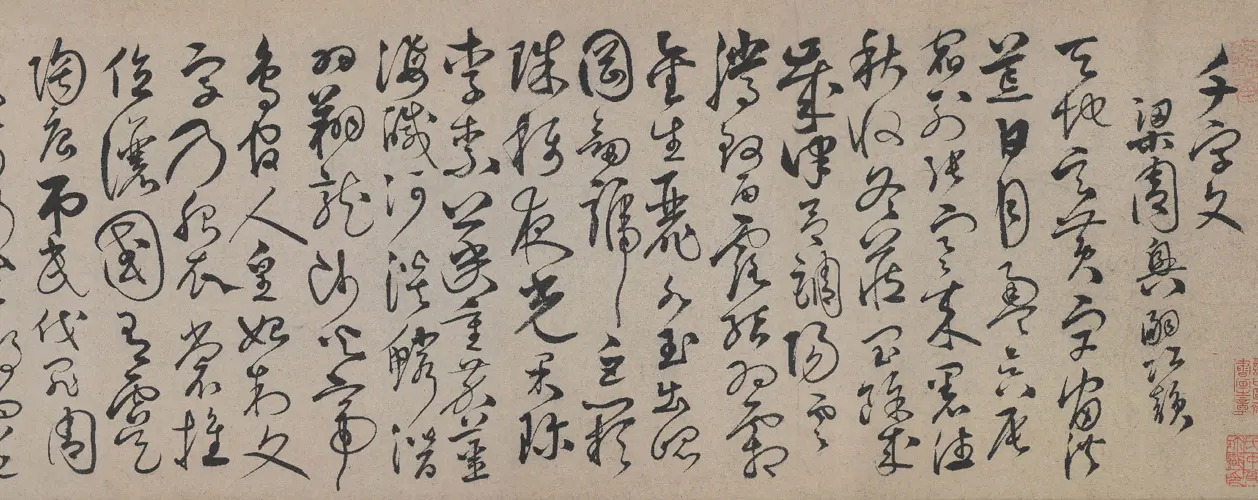 千字文
梁周興嗣次韻
天地玄黃宇宙洪
荒日月盈昃辰
宿列張寒來暑往
秋收冬藏閏餘成
歲律呂調陽雲
騰致雨露結為霜
金生麗水玉出崑
岡劍號巨闕
珠稱夜光菓珍
李柰菜重芥薑
海鹹河淡鱗潛
羽翔龍師火帝
鳥官人皇始制文
字乃服衣裳推
位讓國有虞
陶唐弔民伐罪周